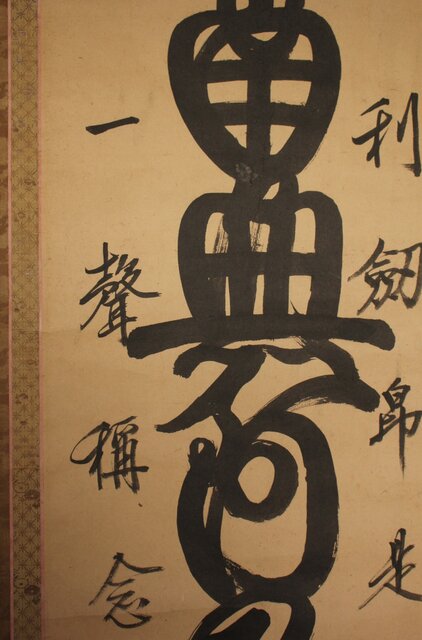 利劔即是
南無阿
一聲稱念